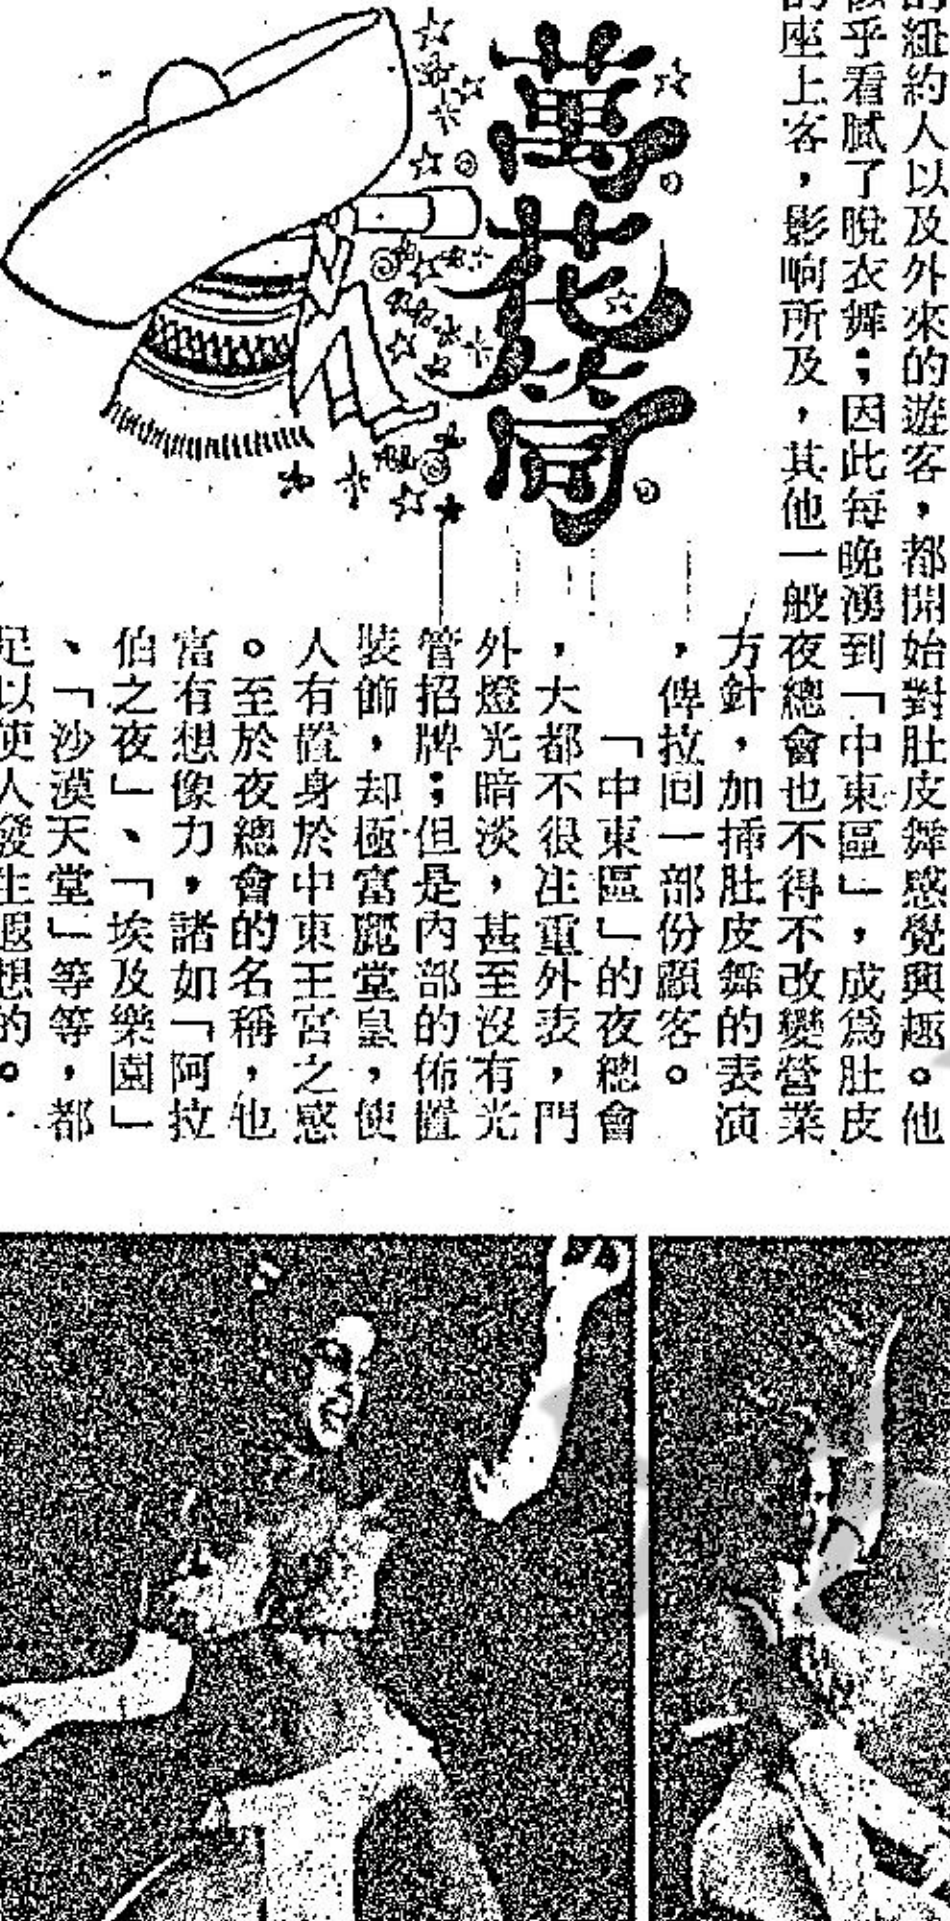 萬花筒
的紐約人以及外來的遊客，都開始對肚皮舞感覺興趣。他
乎看膩了脫衣舞；因此每晚湧到「中東區」，成爲肚皮
的座上客，影响所及，其他一般夜總會也不得不改變營業
方針，加插肚皮舞的表演
，俾拉回一部份顧客。
「中東區」的夜總會
，大都不很注重外表，門
外燈光暗淡，甚至沒有光
管招牌；但是內部的佈置
裝飾，却極富麗堂皇，使
人有置身於中東王宮之感
。至於夜總會的名稱，也
富有想像力，諸如「阿拉
伯之夜」、「埃及樂園」
、「沙漠天堂」等等，都
足以使人發生遐想的。